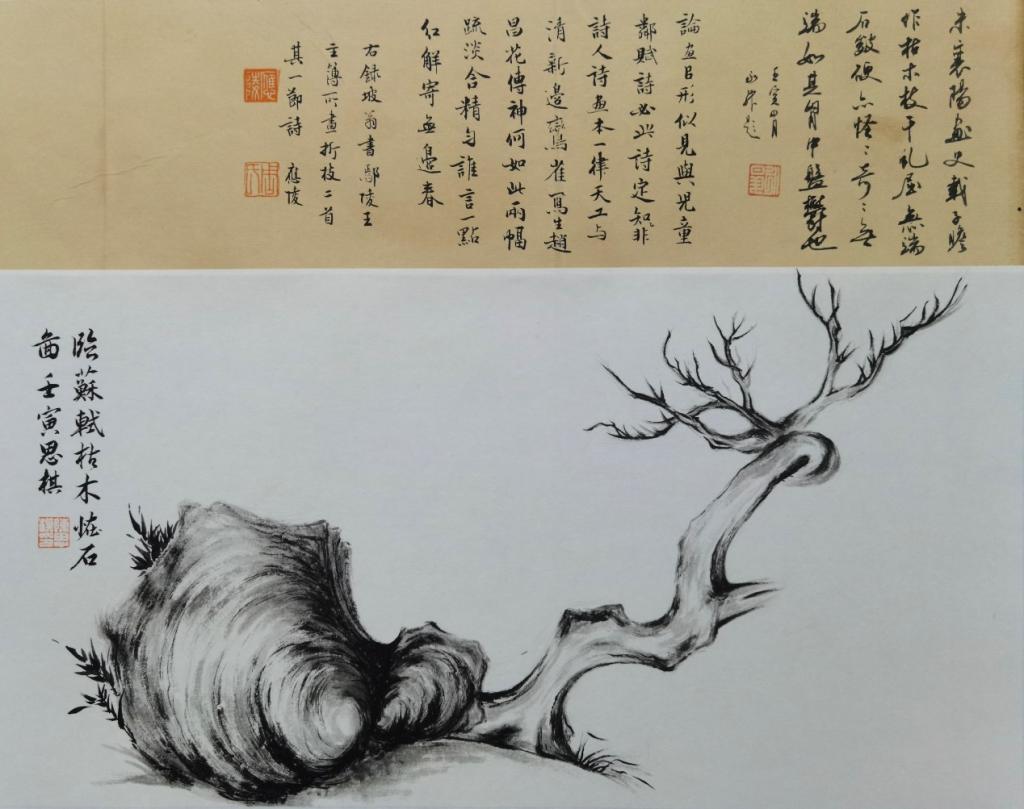 米襄陽画史載子瞻
作枯木枝干虬屈無端
石皴硬亦怪怪奇奇無
端如其胸中盤鬱也
壬寅四月
論画以形似見與児童
鄰賦詩必此詩定知非
詩人詩画本一律天工与
清新邊鸞雀寫生趙
昌花傳神何如此兩幅
疏淡含精匀誰言一點
紅解寄無邊春
右録坡翁書鄢陵王
主簿所畫折枝二首
其一節詩 應陵
臨蘇軾枯木怪石
啚壬寅思棋